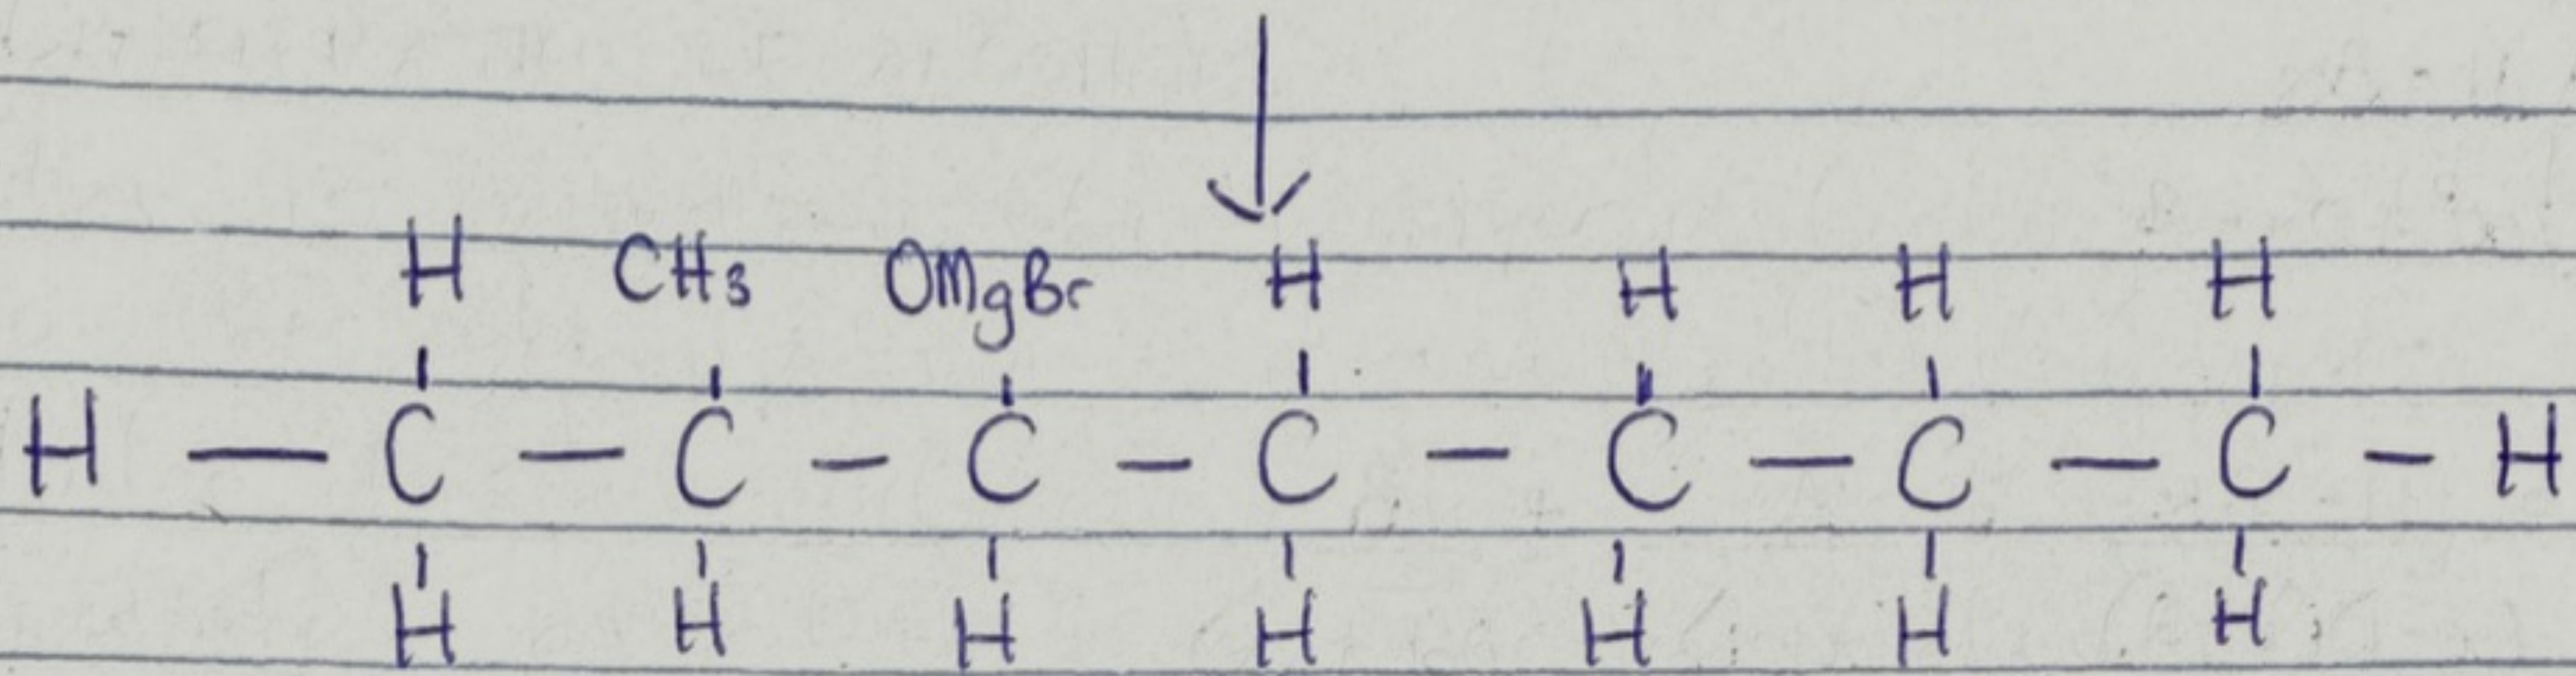 H CH3 OMgBr H H H H
H — C — C — C — C — C — C — C — H
H H H H H H H